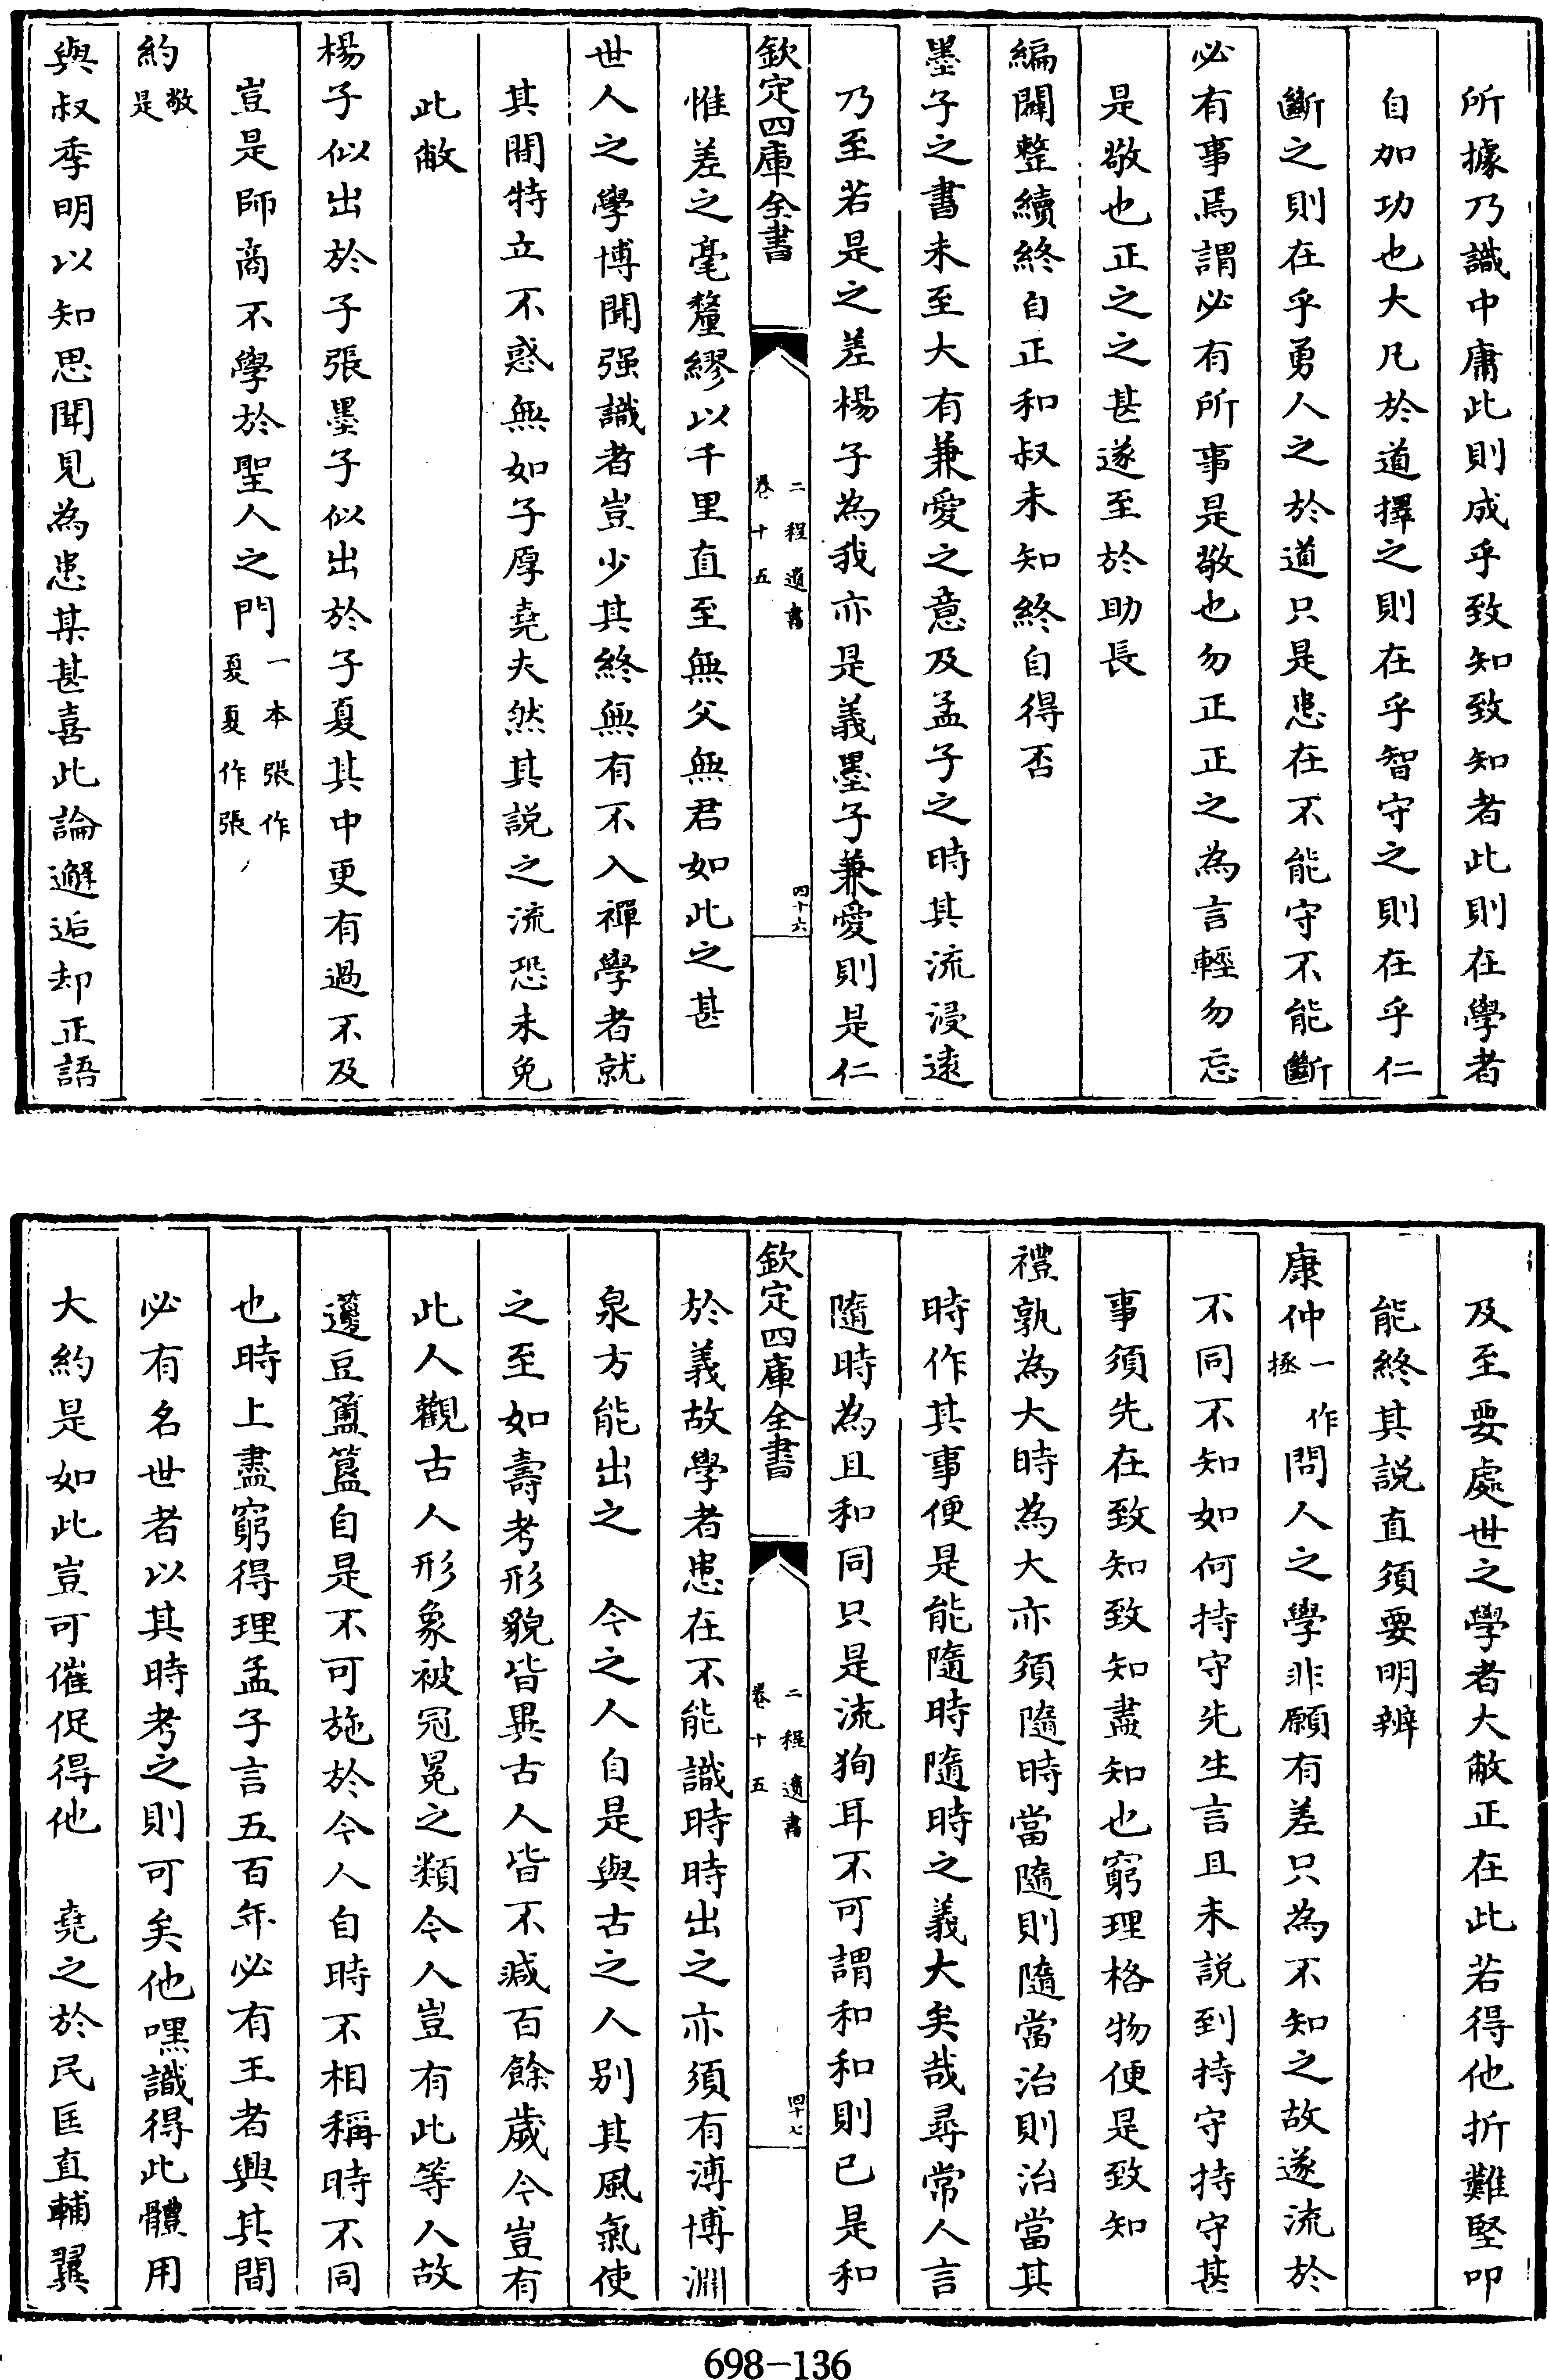 所據乃識中庸此則成乎致知致知者此則在學者
自加功也大凡於道擇之則在乎智守之則在乎仁
斷之則在乎勇人之於道只是患在不能守不能斷
必有事焉謂必有所事是敬也勿正正之為言輕勿忘
是敬也正之之甚遂至於助長
編闢整續終自正和叔未知終自得否
墨子之書未至大有兼愛之意及孟子之時其流浸逺
乃至若是之差楊子為我亦是義墨子兼愛則是仁
欽定四庫全書
二程遺書
卷十五
四十六
惟差之毫釐繆以千里直至無父無君如此之甚
世人之學博聞强識者豈少其終無有不入禪學者就
其間特立不惑無如子厚堯夫然其説之流恐未免
此敝
楊子似出於子張墨子似出於子夏其中更有過不及
豈是師商不學於聖人之門一本張作
夏夏作張
約敬
是
與叔季明以知思聞見為患某甚喜此論邂逅却正語
及至要處世之學者大敝正在此若得他折難堅叩
能終其説直須要明辨
康仲一作
拯問人之學非願有差只為不知之故遂流於
不同不知如何持守先生言且未説到持守持守甚
事須先在致知致知盡知也窮理格物便是致知
禮孰為大時為大亦須隨時當隨則隨當治則治當其
時作其事便是能隨時隨時之義大矣哉尋常人言
隨時為且和同只是流狥耳不可謂和和則已是和
欽定四庫全書
二程遺書
卷十五
四十七
於義故學者患在不能識時時出之亦須有溥博淵
泉方能出之　今之人自是與古之人别其風氣使
之至如壽考形貌皆異古人皆不减百餘歲今豈有
此人觀古人形象被冠冕之類今人豈有此等人故
籩豆簠簋自是不可施於今人自時不相稱時不同
也時上盡窮得理孟子言五百年必有王者興其間
必有名世者以其時考之則可矣他嘿識得此體用
大約是如此豈可催促得他　堯之於民匡直輔翼
698-136